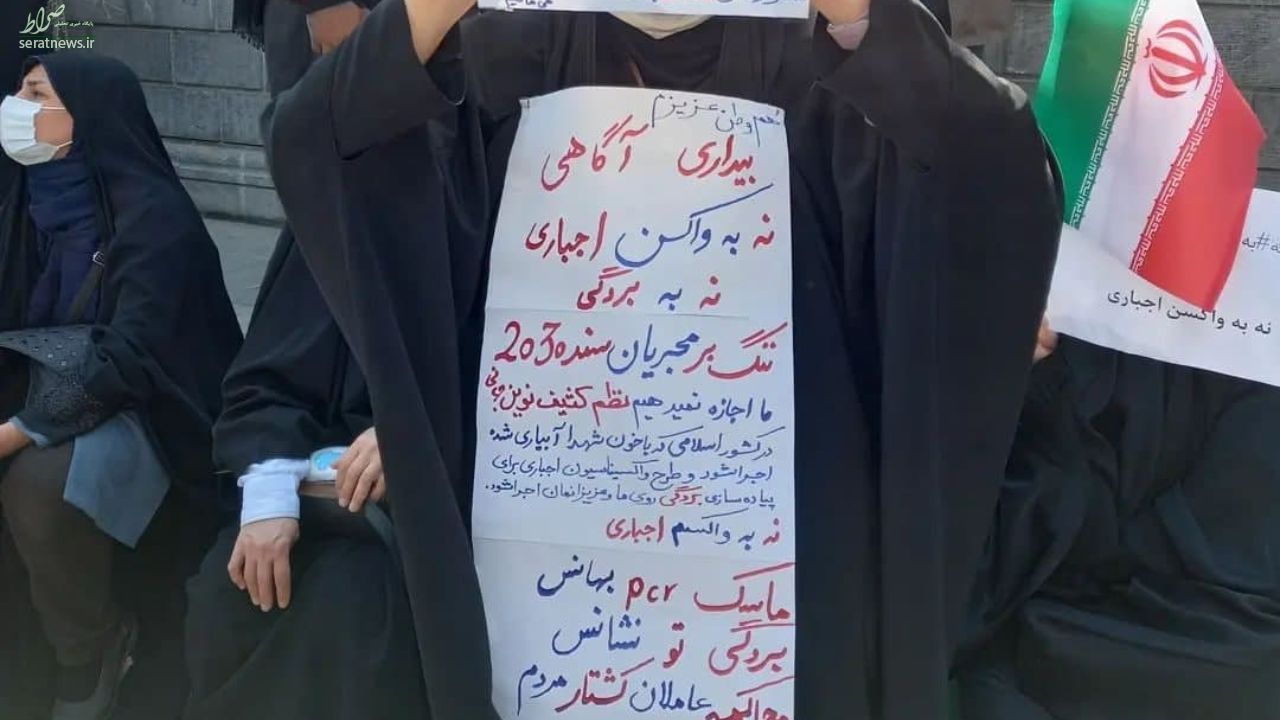 صراط
seratnews.ir
هم وطن عزیزم
بیداری آگاهی
نه به واکسن اجباری
نه به بردگی
ننگ بر مجریان سند 2030
ما اجازه نمیدهیم نظم کثیف نوین جهانی
در کشور اسلامی که با خون شهدا آبیاری شده
اجرا شود و طرح واکسیناسیون اجباری برای
پیاده سازی بردگی روی ما و عزیزانمان اجرا شود.
نه به واکسم اجباری
ماسک pcr بهانس
بردگی تو نشانس
محاکمه عاملان کشتار مردم
#به
نه به واکسن اجباری